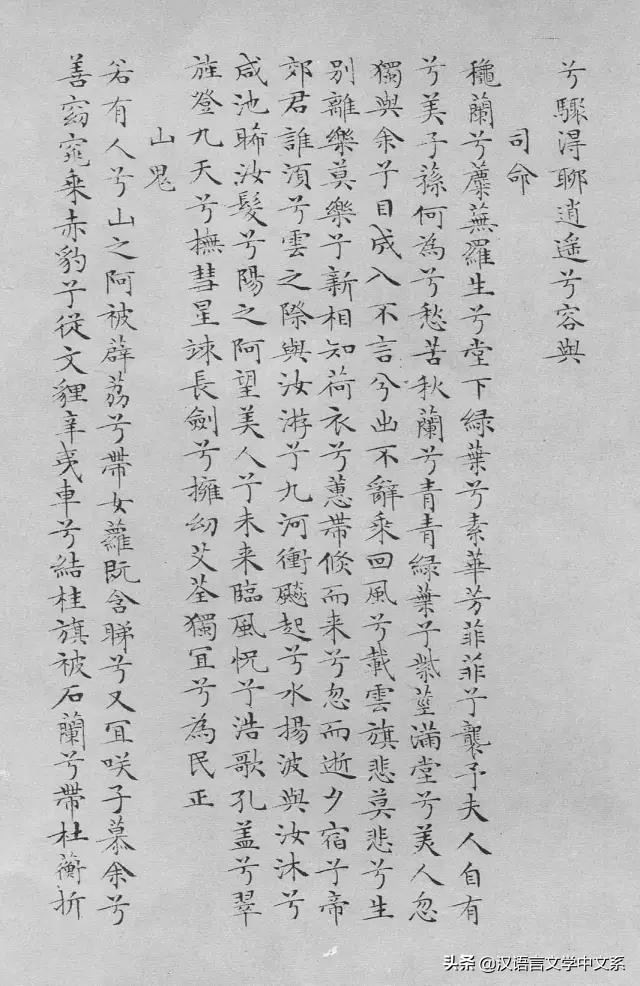 兮驟得聊逍遙兮容與
司命
穐蘭兮蘪蕪羅生兮堂下綠葉兮素華芳菲菲兮襲予夫人自有
兮美子蓀何為兮愁苦秋蘭兮青青綠葉兮紫莖滿堂兮美人忽
獨與余兮目成入不言兮出不辭乘回風兮載雲旗悲莫悲兮生
別離樂莫樂兮新相知荷衣兮蕙帶倏而来兮忽而逝夕宿兮帝
郊君誰湏兮雲之際與汝游兮九河衝飈起兮水揚波與汝沐兮
咸池晞汝髮兮陽之阿望美人兮未来臨風怳兮浩歌孔盖兮翠
旌登九天兮撫彗星竦長劍兮擁幼艾荃獨冝兮為民正
山鬼
若有人兮山之阿被薜荔兮帶女蘿既含睇兮又冝咲子慕余兮
善窈窕乘赤豹兮從文貍辛夷車兮結桂旗被石蘭兮帶杜蘅折
头条 @汉语言文学中文系